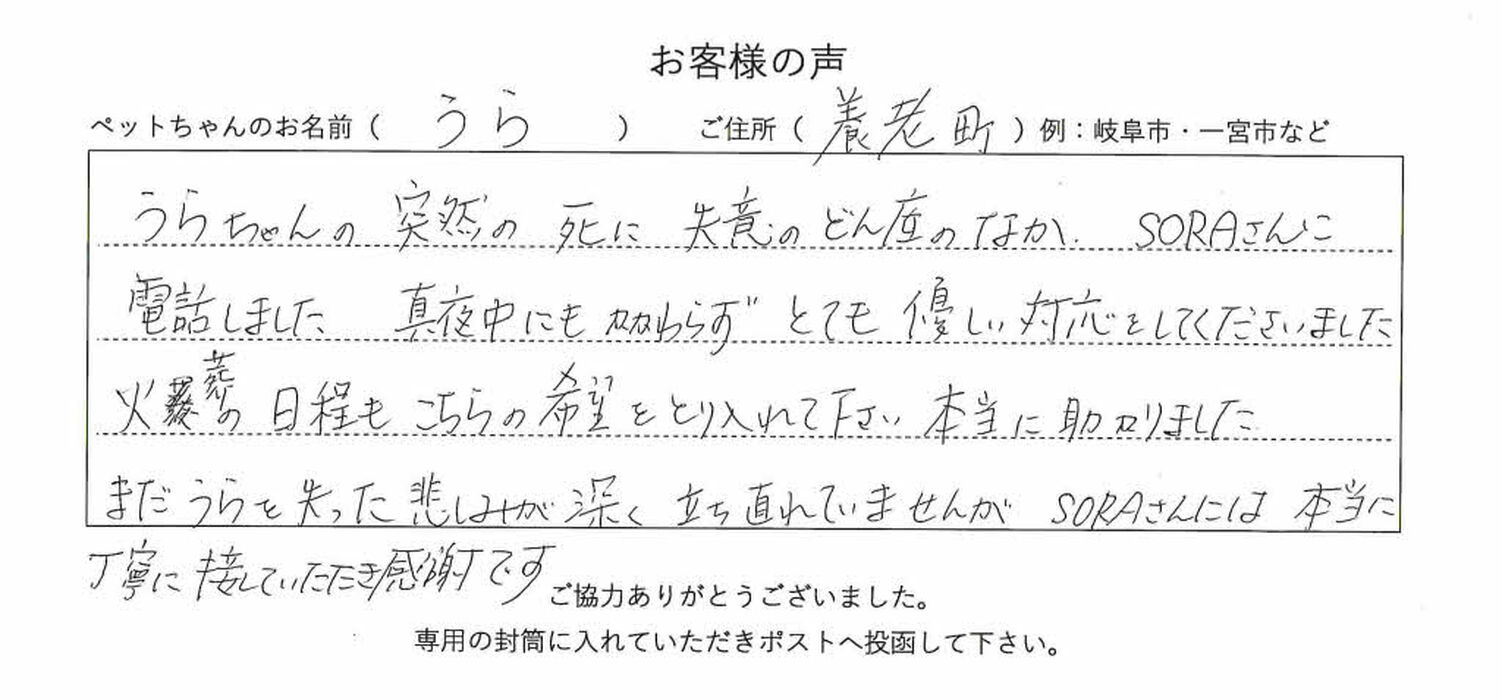 お客様の声
ペットちゃんのお名前（ うら ） ご住所（ 養老町 ）例：岐阜市・一宮市など
うらちゃんの 突然の 死に 失意のどん底のなか、 SORAさんに
電話しました 真夜中にもかかわらず とても 優しい対応をしてくださいました
火葬の 日程も こちらの希望をとり入れて下さい 本当に助かりました
まだうらを失った悲しみが深く立ち直れていませんが SORAさんには 本当に
丁寧に接していただき感謝です
ご協力ありがとうございました。
専用の封筒に入れていただきポストへ投函して下さい。